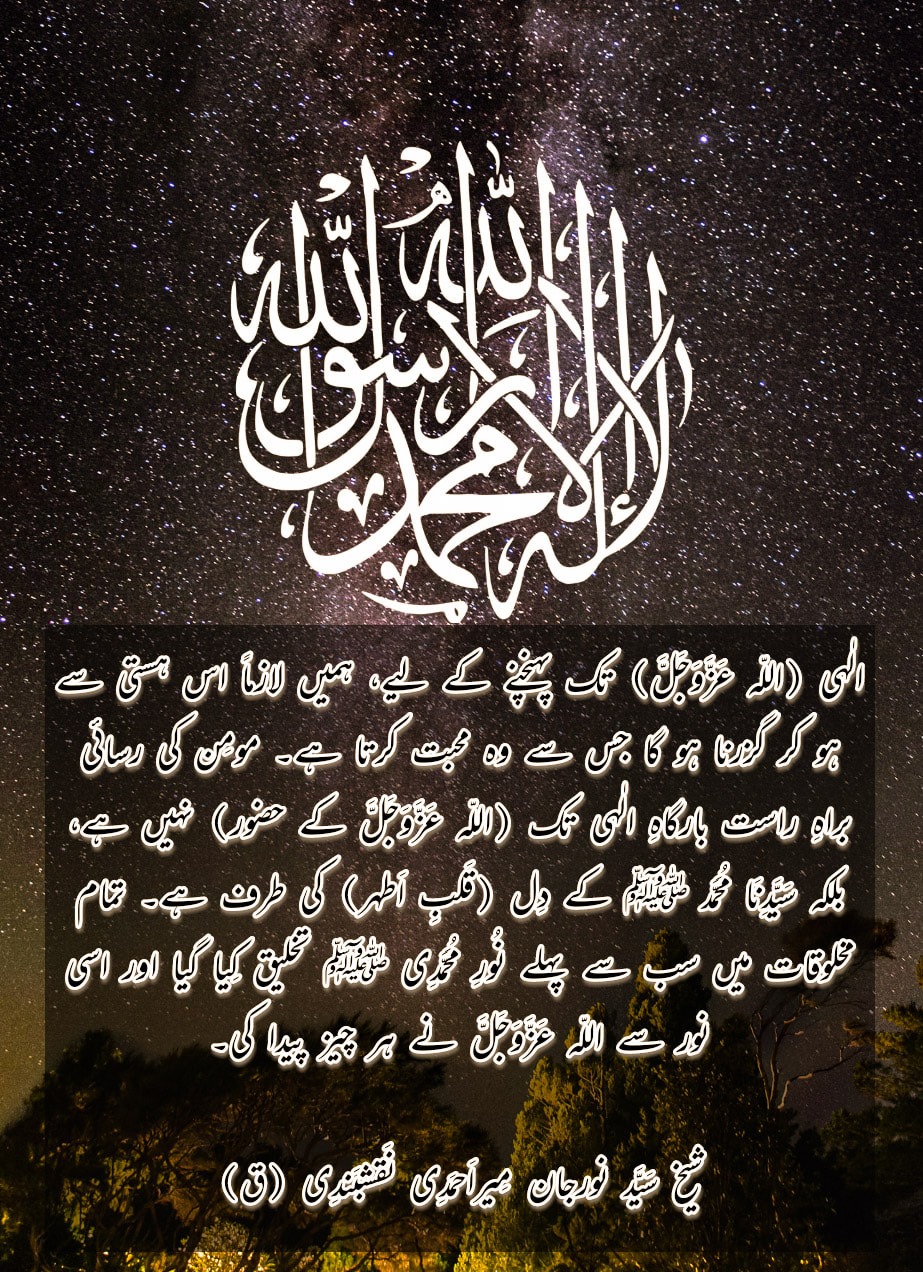 لا إله إلا الله محمد رسول الله
الٰہی (اللّہ عَزَّوَجَلَّ) تک پہنچنے کے لیے، ہمیں لازماً اس ہستی سے
ہو کر گزرنا ہو گا جس سے وہ محبت کرتا ہے۔ مومِن کی رسائی
براہِ راست بارگاہِ الٰہی تک (اللّہ عَزَّوَجَلَّ کے حضور) نہیں ہے،
بلکہ سَیَّدِنَا مُحَمَّد ﷺ کے دِل (قَلبِ اَطہر) کی طرف ہے۔ تمام
مخلوقات میں سب سے پہلے نُورِ مُحَمَّدِی ﷺ تخلیق کِیا گیا اور اسی
نور سے اللّہ عَزَّوَجَلَّ نے ہر چیز پیدا کی۔
شیخ سَیَّد نورجان مِیراَحمَدِی نَقشبَندِی (ق)